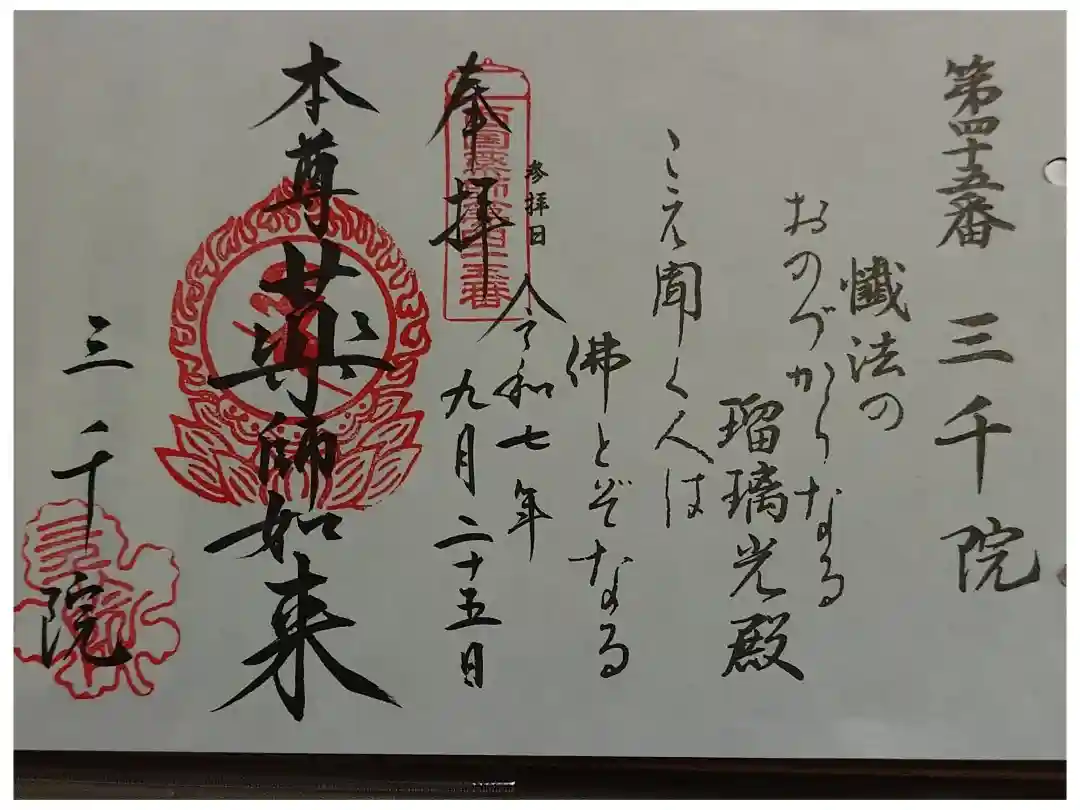 第四十五番 三千院
懺法の
おのづからなる
瑠璃光殿
こえ聞く人は
佛とぞなる
参拝日
令和七年
九月二十五日
奉拝
西国薬師第四十五番
本尊 薬師如来
三千院